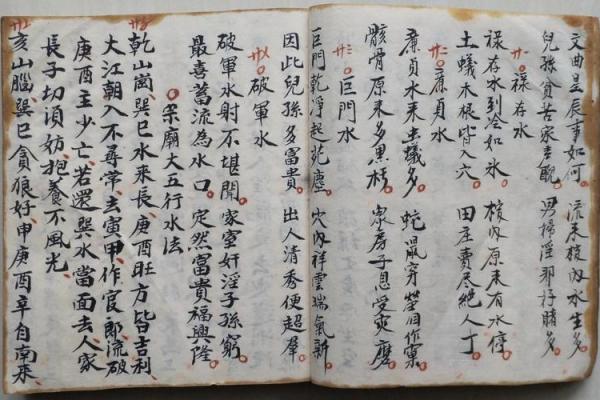 文曲星辰事如何 流來棺內水生多
兒孫貧苦家去 男婦淫邪好賭多
廿一 祿存水
祿存水到冷如氷 棺內原來有水停
土蟻木根皆入穴 田庄賣尽絕人丁
廿二 廉貞水
廉貞水來虫蟻多 蛇鼠穿作窠
骸骨原來多黑枝 眾房子息受災磨
廿三 巨門水
巨門乾淨起塵 穴內祥雲瑞氣新
因此兒孫多富貴 出人清秀便超羣
廿乂 破軍水
破軍水射不堪聞 家室奸淫子孫窮
最喜蓄流為水口 定然富貴福興隆
宗廟大五行水法
乾山崗巽巳水來長庚酉旺方皆吉利
大江朝入不尋常去寅甲作官郎流破
庚酉主少亡若還巽水當面去人家
長子切頃妨抱養不風光
亥山巽巳貪狼好申庚酉辛自南來